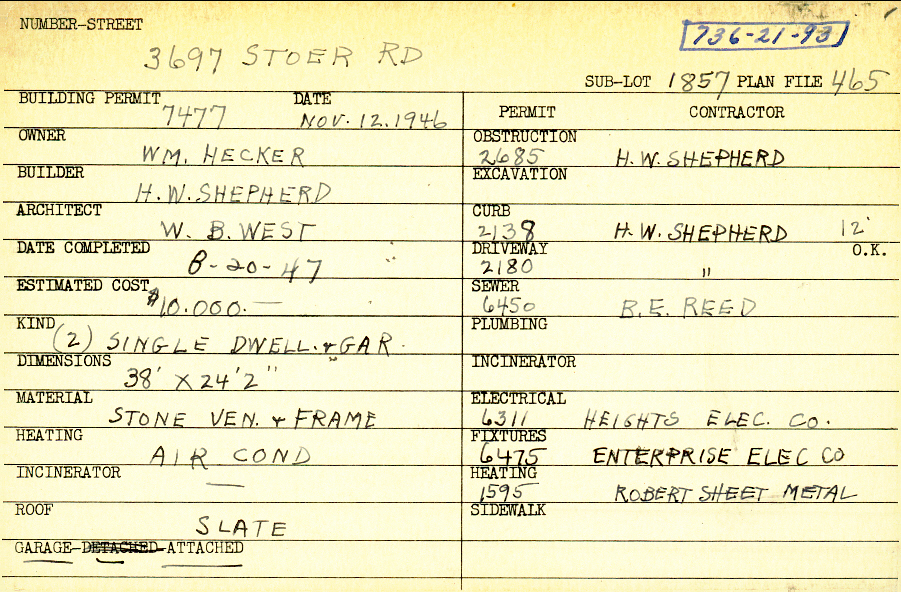 NUMBER-STREET
3697 STOER RD
736-21-93
SUB-LOT 1857 PLAN FILE 465
BUILDING PERMIT 7477 DATE NOV. 12. 1946
OWNER WM. HECKER
BUILDER H.W. SHEPHERD
ARCHITECT W. B. WEST
DATE COMPLETED 8-20-47
ESTIMATED COST $10.000.—
KIND (2) SINGLE DWELL. & GAR.
DIMENSIONS 38' X 24'2"
MATERIAL STONE VEN. & FRAME
HEATING AIR COND
INCINERATOR —
ROOF SLATE
GARAGE-DETACHED-ATTACHED
PERMIT CONTRACTOR
OBSTRUCTION 2685 H.W. SHEPHERD
EXCAVATION
CURB 2138 H.W. SHEPHERD 12'
DRIVEWAY 2180 " O.K.
SEWER 6450 B.E. REED
PLUMBING
INCINERATOR
ELECTRICAL 6311 HEIGHTS ELEC. CO.
FIXTURES 6475 ENTERPRISE ELEC CO
HEATING 1595 ROBERT SHEET METAL
SIDEWALK